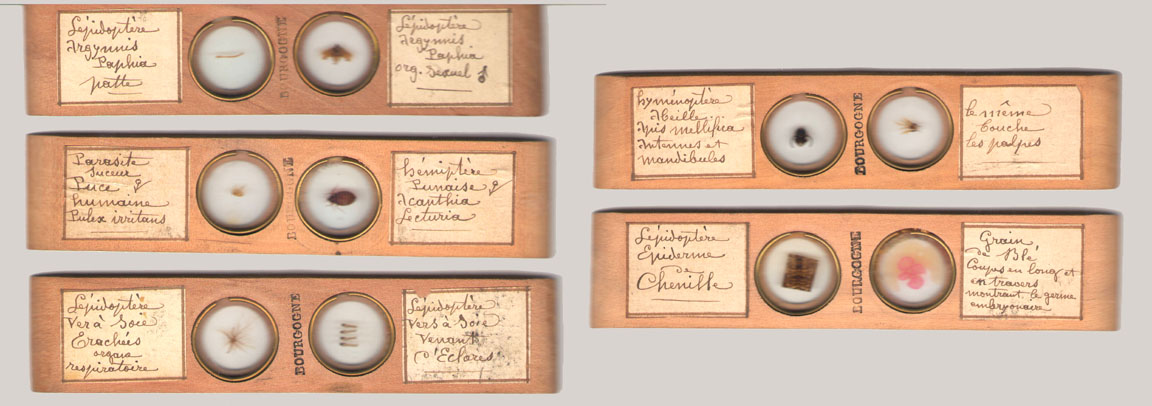 Lépidoptère
Argynnis
Paphia
patte
BOURGOGNE
Lépidoptère
Argynnis
Paphia
org. Sexuel ♂
Parasite
Suceur
Puce ♀
humaine
Pulex irritans
BOURGOGNE
hémiptère
Punaise ♀
Acanthia
Lecturia
Lépidoptère
Ver à Soie
Trachées
organe
respiratoire
BOURGOGNE
Lépidoptère
Vers à Soie
Venant
d'Eclores
hyménoptère
Abeille
Apis mellifica
Antennes et
mandibules
BOURGOGNE
le même
bouche
les palpes
Lépidoptère
Epiderme
de
Chenille
BOURGOGNE
Grain
de Blé
Coupes en long et
en travers
montrant le germe
embryonaire